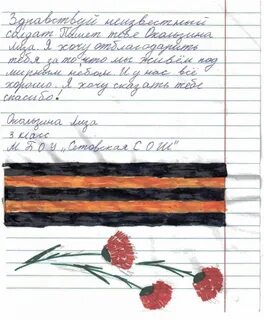 Здравствуй неизвестный
солдат Пишет тебе Окользина
Лиза. Я хочу отблагодарить
тебя за то что мы живём под
мирным небом. И у нас всё
хорошо. Я хочу сказать тебе
спасибо!
Окользина Лиза
3 класс
М Б О У „Сотовская С О Ш"